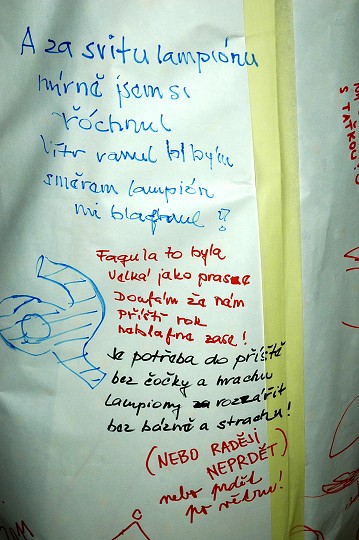 A za svitu lampiónu
mírně jsem si
řóchnul
lítr vanul blbým
směrem lampión
mi blafnul !
Fagula to byla
velká jako prase
Doufám že nám
příští rok
neblafne zase!
Je potřeba do příště
bez čočky a hrachu
lampiony rozzářit
bez bázně a strachu!
(NEBO RADĚJI
NEPRDĚT)
nebo prdět
po větru!
S TAŤKOU!